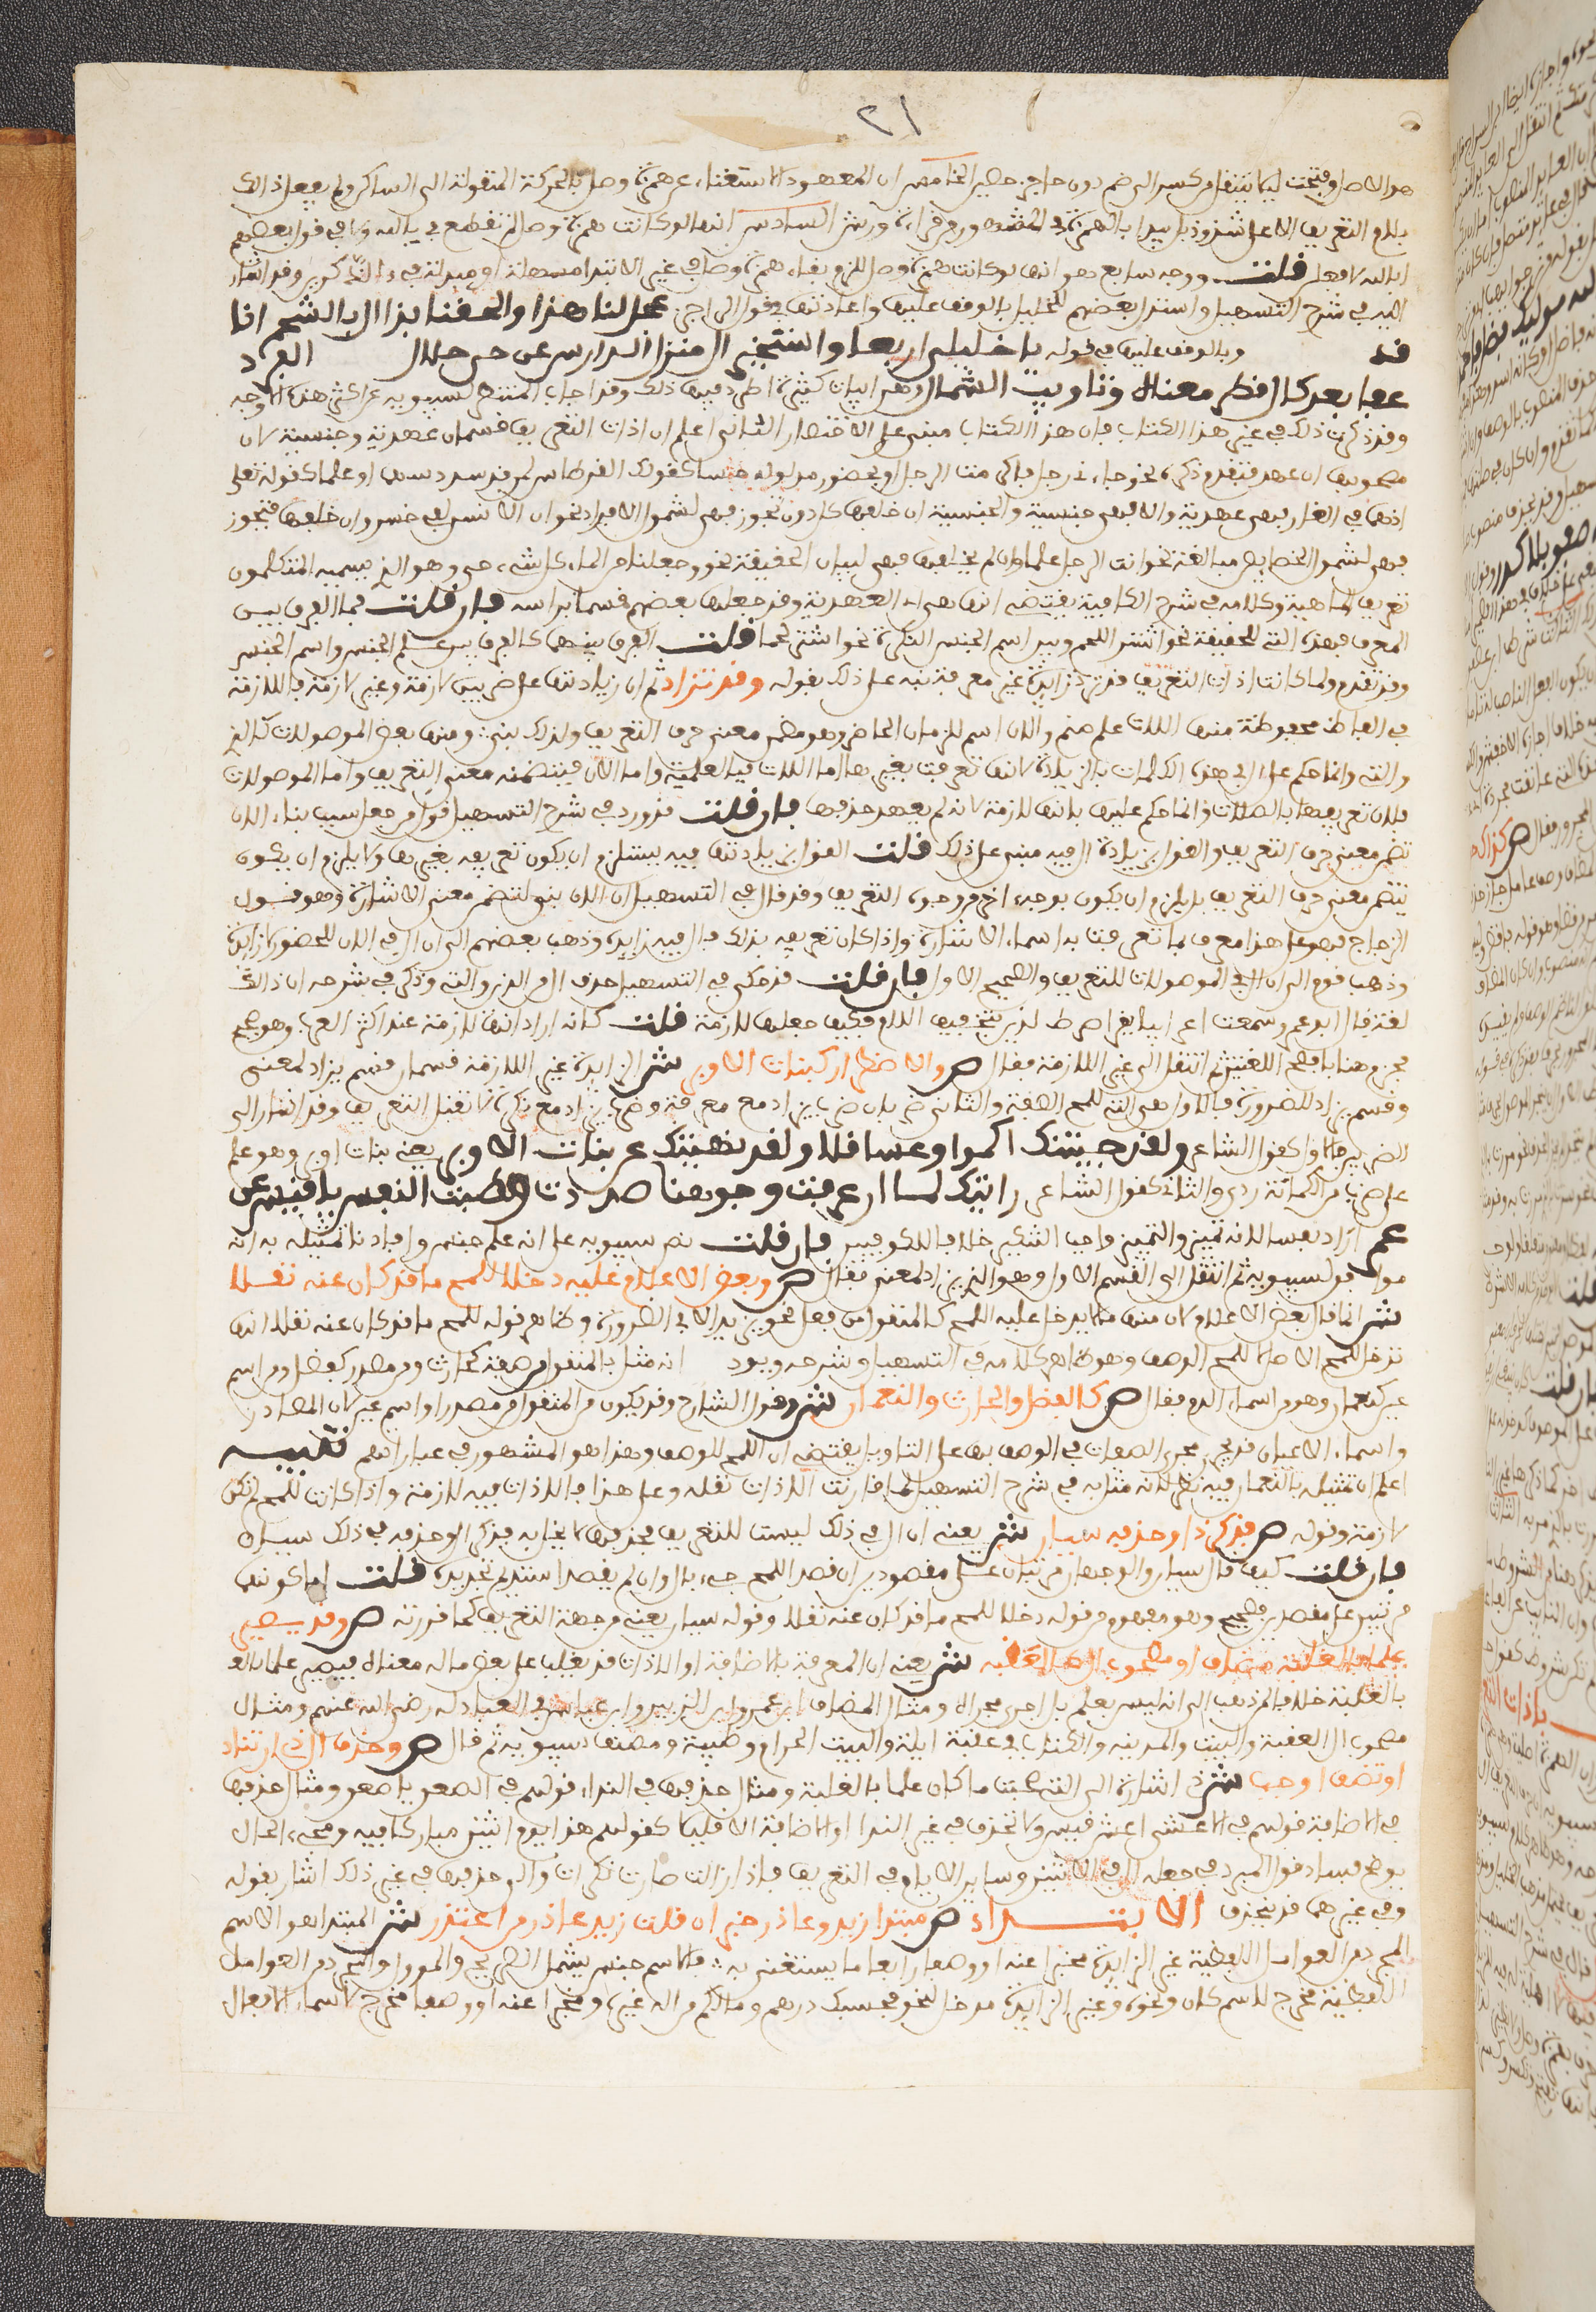 ٢١
هو الاصل وفتحت ليلا ينتقل من كسر الى ضم دون حاجز حصين الخامس ان المعهود الاستغناء عن همزة وصل بالحركة المنقولة الى الساكن ولم يفعل ذلك
بلام التعريف الا على شذوذ بل يبدا بالهمزة في المشهور من قراءة ورش السادس انها لو كانت همزة وصل لم تقطع في يا الله ولا في قول بعضهم
ا بالله لافعلن قلت ووجه سابع هو انها لو كانت همزة وصل للزم بقاء همزة وصل في غير الابتدا مسهلة او مبدلة في ءالذكرين وقد اشار
اليه في شرح التسهيل واستدل بعضهم للخليل بالوقف عليها واعادتها في قول الراجز عجل لنا هذا والحقنا بذا ال بالشحم انا
قد وبالوقف عليها في قوله يا خليلي اربعا واستخبرا ال منزل الدارس عن حي حلال
عفا بعدك ال قطر معناه وتاويب الشمال وهي ابيات كثيرة اطرد فيها ذلك وقد اجاب المنتصر لسيبويه عن اكثر هذه الاوجه
وقد ذكرت ذلك في غير هذا الكتاب فان هذا الكتاب مبني على الاختصار الثاني اعلم ان اداة التعريف قسمان عهدية وجنسية لان
مصحوبها ان عهد بتقدم ذكره نحو جاءني رجل فاكرمت الرجل او بحضور مدلوله حسا كقولك القرطاس لمن قد سدد سهما او علما كقوله تعلى
اذهما في الغار فهي عهدية والا فهي جنسية والجنسية ان خلفها كل دون تجوز فهي لشمول الافراد نحو ان الانسان لفي خسر وان خلفها بتجوز
فهي لشمول الخصايص مبالغة نحو انت الرجل علما وان لم يخلفها فهي لبيان الحقيقة نحو وجعلنا من الماء كل شيء حي وهو الذي يسميه المتكلمون
تعريف الماهية وكلامه في شرح الكافية يقتضي انها هي العهدية وقد جعلها بعضهم قسما براسه فان قلت فما الفرق بين
المعرف بهذه التي للحقيقة نحو اشتر اللحم وبين اسم الجنس النكرة نحو اشتر لحما قلت الفرق بينهما كالفرق بين علم الجنس واسم الجنس
وقد تقدم ولما كانت اداة التعريف قد ترد زايدة غير معرفة نبه على ذلك بقوله وقد تزاد ثم ان زيادتها على ضربين لازمة وغير لازمة فاللازمة
في الفاظ محفوظة منها اللات علم صنم والان اسم للزمان الحاضر وهو مضمن معنى حرف التعريف ولذلك بني ومنها بعض الموصولات كالذي
والتي وانما حكم على ال في هذه الكلمات بالزيادة لانها تعرفت بغيرها اما اللات فبالعلمية واما الان فبتضمنه معنى التعريف واما الموصولات
فلان تعريفها بالصلات وانما حكم عليها بانها لازمة لانه لم يعهد حذفها فان قلت قد رد في شرح التسهيل قول من جعل سبب بناء الان
تضمن معنى حرف التعريف والقول بزيادة ال فيه مبني على ذلك قلت القول بزيادتها فيه يستلزم ان يكون تعريفه بغيرها ولا يلزم ان يكون
بتضمن معنى حرف التعريف بل يلزم ان يكون بوجه اخر من وجوه التعريف وقد قال في التسهيل ان الان بني لتضمن معنى الاشارة وهو قول
الزجاج فهو على هذا معرف بما تعرفت به اسماء الاشارة واذا كان تعريفه بذلك فال فيه زايدة وذهب بعضهم الى ان ال في الان للحضور لا زايدة
وذهب قوم الى ان ال في الموصولات للتعريف والصحيح الاول فان قلت قد حكى في التسهيل حذف ال من الذين والتي وذكر في شرحه ان ذلك
لغة قال ابو عمرو سمعت اعرابيا يقرا صراط لذين بتخفيف اللام فكيف جعلها لازمة قلت كانه اراد انها لازمة عند اكثر العرب وهو
هنا بافصح اللغتين ثم انتقل الى غير اللازمة فقال ص ولاضطرار كبنات الاوبر ش الزايدة غير اللازمة قسمان قسم يزاد لمعنى
وقسم يزاد للضرورة فالاول هي التي للمح الصفة والثاني ضربان ضرب يزاد مع معرفة وضرب يزاد مع نكرة لا تقبل التعريف وقد اشار الى
الضربين فالاول كقول الشاعر ولقد جنيتك اكموا وعساقلا ولقد نهيتك عن بنات الاوبر يعني بنات اوبر وهو علم
على ضرب من الكماة ردي والثاني كقول الشاعر رايتك لما ان عرفت وجوهنا صددت وطبت النفس يا قيس عن
عمرو اراد نفسا لانه تمييز والتمييز واجب التنكير خلافا للكوفيين فان قلت نص سيبويه على انه علم جنس
ثم انتقل الى القسم الاول وهو الذي يزاد لمعنى فقال ص وبعض الاعلام عليه دخلا للمح ما قد كان عنه نقلا
ش انما قال بعض الاعلام لان منها ما لا يدخل عليه للمح كالمنقول من فعل نحو يزيد الا في الضرورة وظاهر قوله للمح ما قد كان عنه نقلا انها
تزاد للمح الاصل لا للمح الوصف وهو ظاهر كلامه في التسهيل وشرحه انه مثل بالمنقول من صفة كحارث ومن مصدر كفضل ومن اسم
عين كنعمان وهو من اسماء الدم فقال ص كالفضل والحارث والنعمان ش وقول الشارح وقد يكون من المنقول من مصدر او اسم عين لان المصادر
واسماء الاعيان قد تجري مجرى الصفات في الوصف بها على التاويل يقتضي ان اللمح للوصف وهذا هو المشهور في عباراتهم تنبيه
اعلم ان تمثيله بالنعمان فيه نظر لانه مثل به في شرح التسهيل لما قارنت الاداة نقله وعلى هذا فالاداة فيه لازمة واذا كانت للمح لم تكن
لازمة وقوله ص فذكر ذا وحذفه سيان ش يعني ان ال في ذلك ليست للتعريف فحذفها لا يخل به فذكر ال وحذفه في ذلك سيان
فان قلت كيف قال سيان والوجهان مرتبان على مقصودين ان قصد اللمح جيء بال وان لم يقصد استديم تجريده قلت اما كونهما
مرتبين على مقصدين فصحيح وهو مفهوم من قوله دخلا للمح ما قد كان عنه نقلا وقوله سيان يعني من جهة التعريف كما قررته ص وقد يصير
علما بالغلبة مضاف او مصحوب ال كالعقبة ش يعني ان المعرف بالاضافة او الاداة قد يغلب على بعض ما له معناه فيصير علما
بالغلبة خلافا لمن ذهب الى انه ليس بعلم بل اجري مجراه ومثال المضاف ابن عمر وابن الزبير وابن عباس في العبادلة رضي الله عنهم ومثال
مصحوب ال العقبة والبيت والمدينة والكتاب في عقبة ايلة والبيت الحرام وطيبة ومصنف سيبويه ثم قال ص وحذف ال ذي ان تناد
او تضف اوجب ش ذي اشارة الى التي صحبت ما كان علما بالغلبة ومثال حذفها في النداء قولهم في الصعق يا صعق ومثال حذفها
في الاضافة قولهم في الاعشى اعشى قيس ولا تحذف في غير الندا او الاضافة الا قليلا كقولهم هذا يوم اثنين مباركا فيه ومجيء الحال
يوضح فساد قول المبرد في جعله ال في الاثنين وساير الايام للتعريف فاذا زالت صارت نكرات والى حذفها في غير ذلك اشار بقوله
وفي غيرهما قد تنحذف الابتداء ص مبتدا زيد وعاذر خبر ان قلت زيد عاذر من اعتذر ش المبتدا هو الاسم
المجرد من العوامل اللفظية غير الزايدة مخبرا عنه او وصفا رافعا ما يستغنى به فالاسم جنس يشمل الصريح والموول والمجرد من العوامل
اللفظية مخرج لاسم كان ونحوه وغير الزايدة مدخل لنحو بحسبك درهم وما لكم من اله غيره ومخبرا عنه او وصفا مخرج لاسماء الافعال